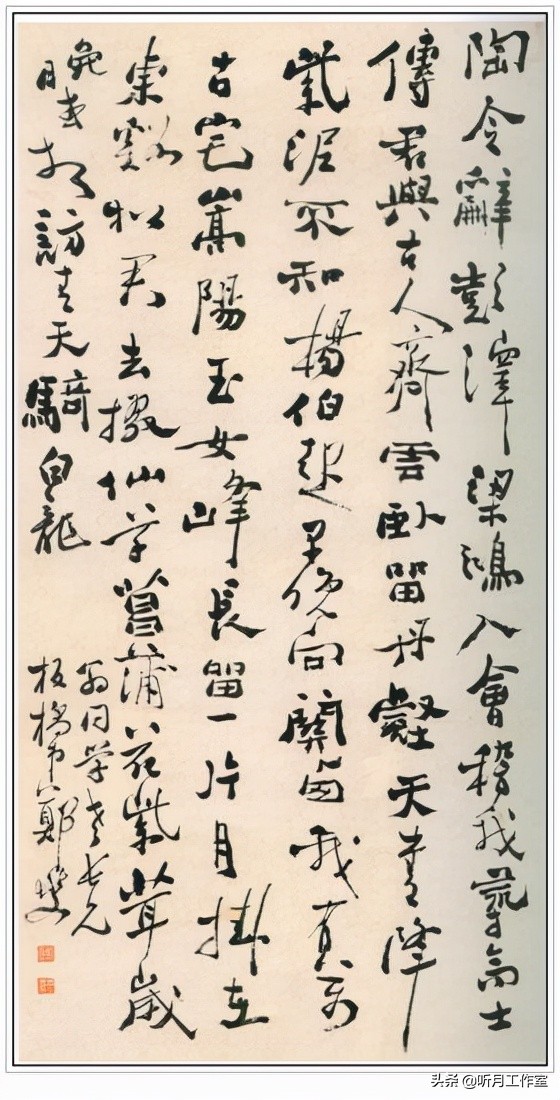 陶令辭彭澤梁鴻入會稽我尋高士
傳君與古人齊雲臥留丹壑天書降
紫泥不知楊伯起早晚向關西我有万
古宅嵩陽玉女峰長留一片月掛在
東谿松君去掇仙草菖蒲花紫茸歲
晚或相訪青天騎白龍
翁同学老長兄
板橋弟鄭燮
头条 @听月工作室